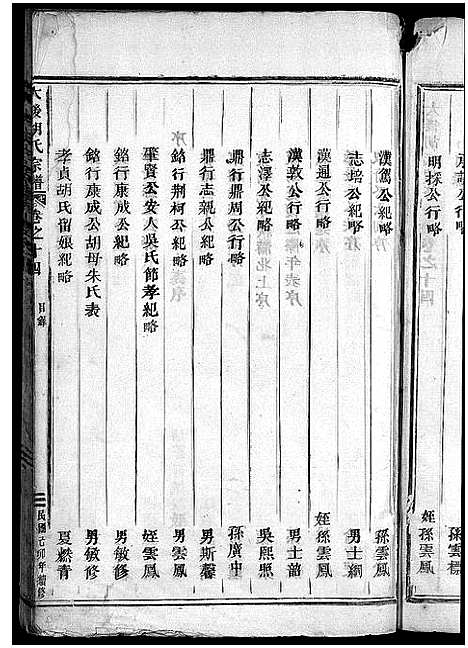 明採公行略 姪孫雲鳳
漢駕公紀略 孫雲鳳
志培公紀略 男士綱
漢週公行略 姪孫雲鳳
漢敦公行略 男士韶
志澤公紀略 吳熙照
鼎行鼎周公行略 孫廣中
鼎行志親公紀略 男斯馨
銘行荆柯公紀略 男雲鳳
肇賢公安人吳氏節孝紀略 姪雲鳳
銘行康成公紀略 男敏修
銘行康成公胡母朱氏表 男敏修
孝貞胡氏宿娘紀略 夏燊青
胡氏宗譜 卷之十四 目錄 民國 卯年續修